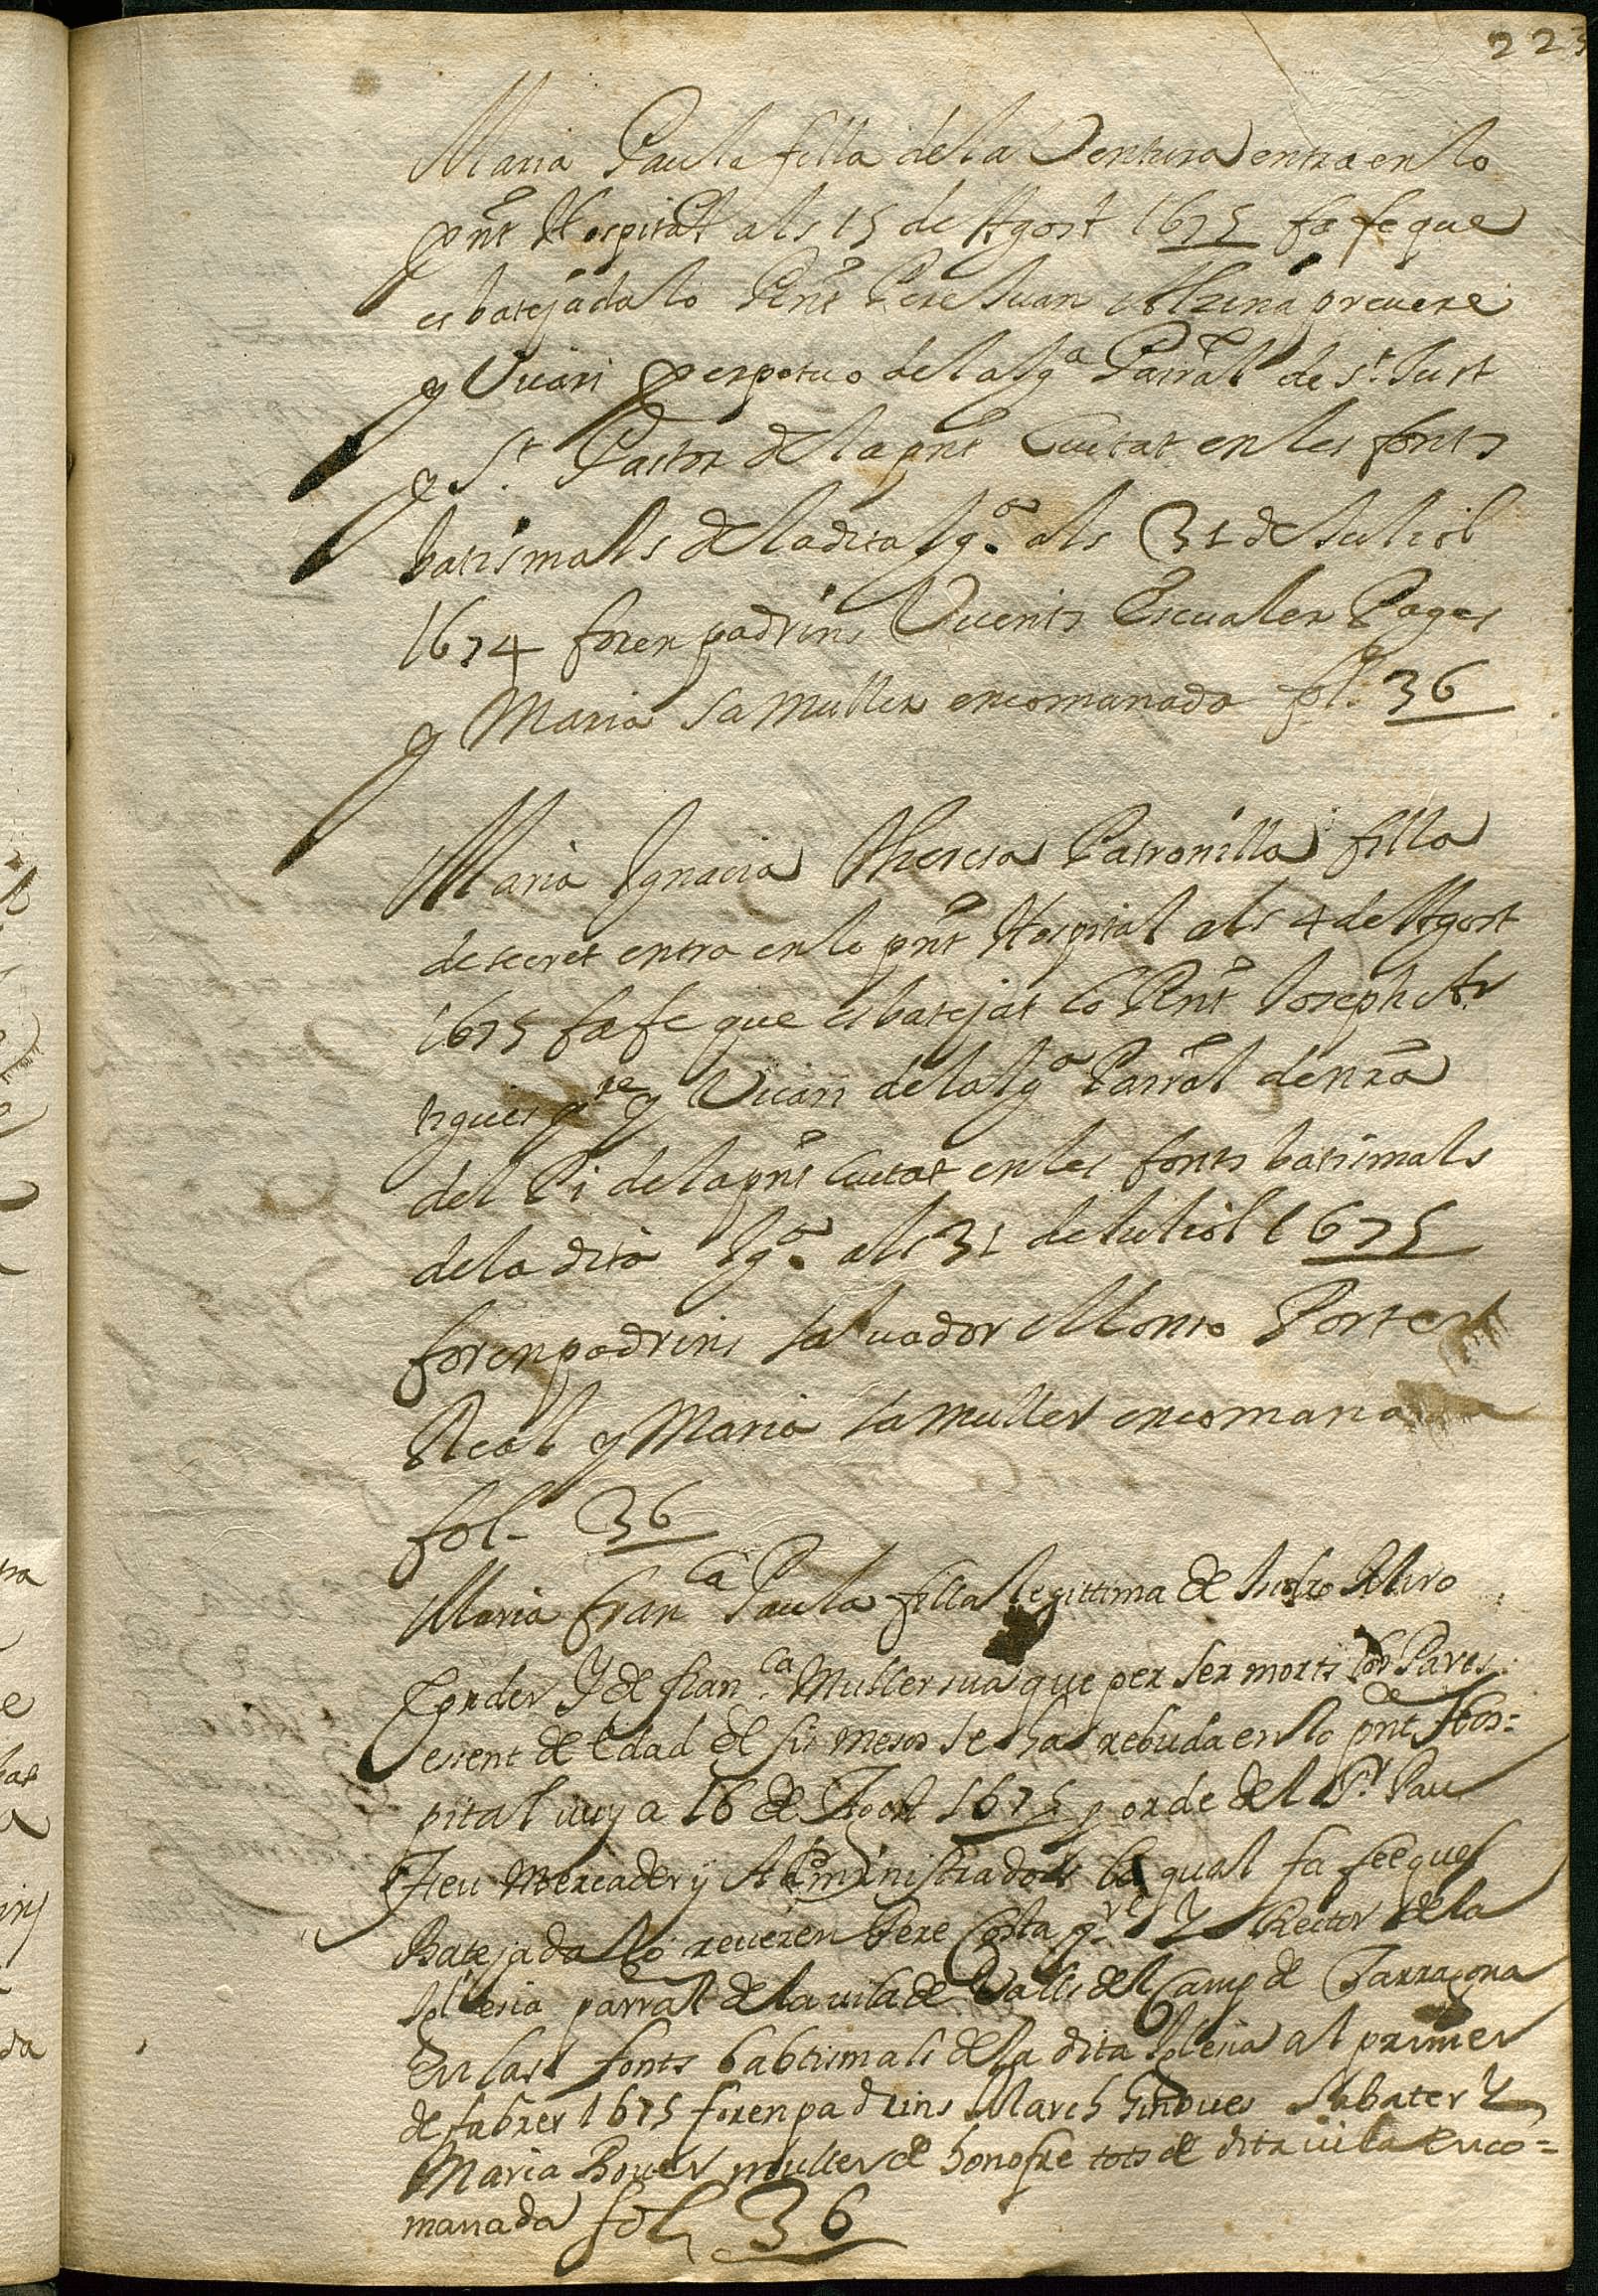 223
Maria Paula filla de la Ventura entra en lo
pnt Hospital als 15 de Agost 1675 fa fe que
es batejada lo Rnt Pere Juan Alzina prevere
y Vicari perpetuo de la Iga Parral de St. Just
y St. Pastor de la pnt Ciutat en les fonts
batismals de la dita Iga. als 31 de Juliol
1674 foren padrins Vicents Escualer Pages
y Maria sa muller encomanada fol. 36
Maria Ignacia Theresa Patronilla filla
de secret entra en lo pnt Hospital als 4 de Agost
1675 fa fe que es batejat lo Rnt Joseph Ar
tigues pre y Vicari de la Iga Parral de nra
del Pi de la pnt Ciutat en les fonts batismals
de la dita Iga. als 31 de Juliol 1675
foren padrins Salvador Monro Porter
Real y Maria sa muller encomana
fol. 36
Maria Franca Paula filla legittima de Isidro Miro
Corder Y de Franca. Muller sua que per ser morts los Pares
essent de edad de sis mesos se ha rebuda en lo pnt Hos=
pital vuy a 16 de Agost 1675 p orde del Sr. Pau
Feu Mercader y Administrador la qual fa fee que es
Batejada lo reveren Pere Costa pre. Y Rector de la
Iglesia parral de la vila de Valls del Camp de Tarragona
En las fonts babtismals de la dita Iglesia al primer
de fabrer 1675 foren padrins March Ginoves Sabater Y
Maria Bover muller de honofre tots de dita vila enco=
manada fol. 36